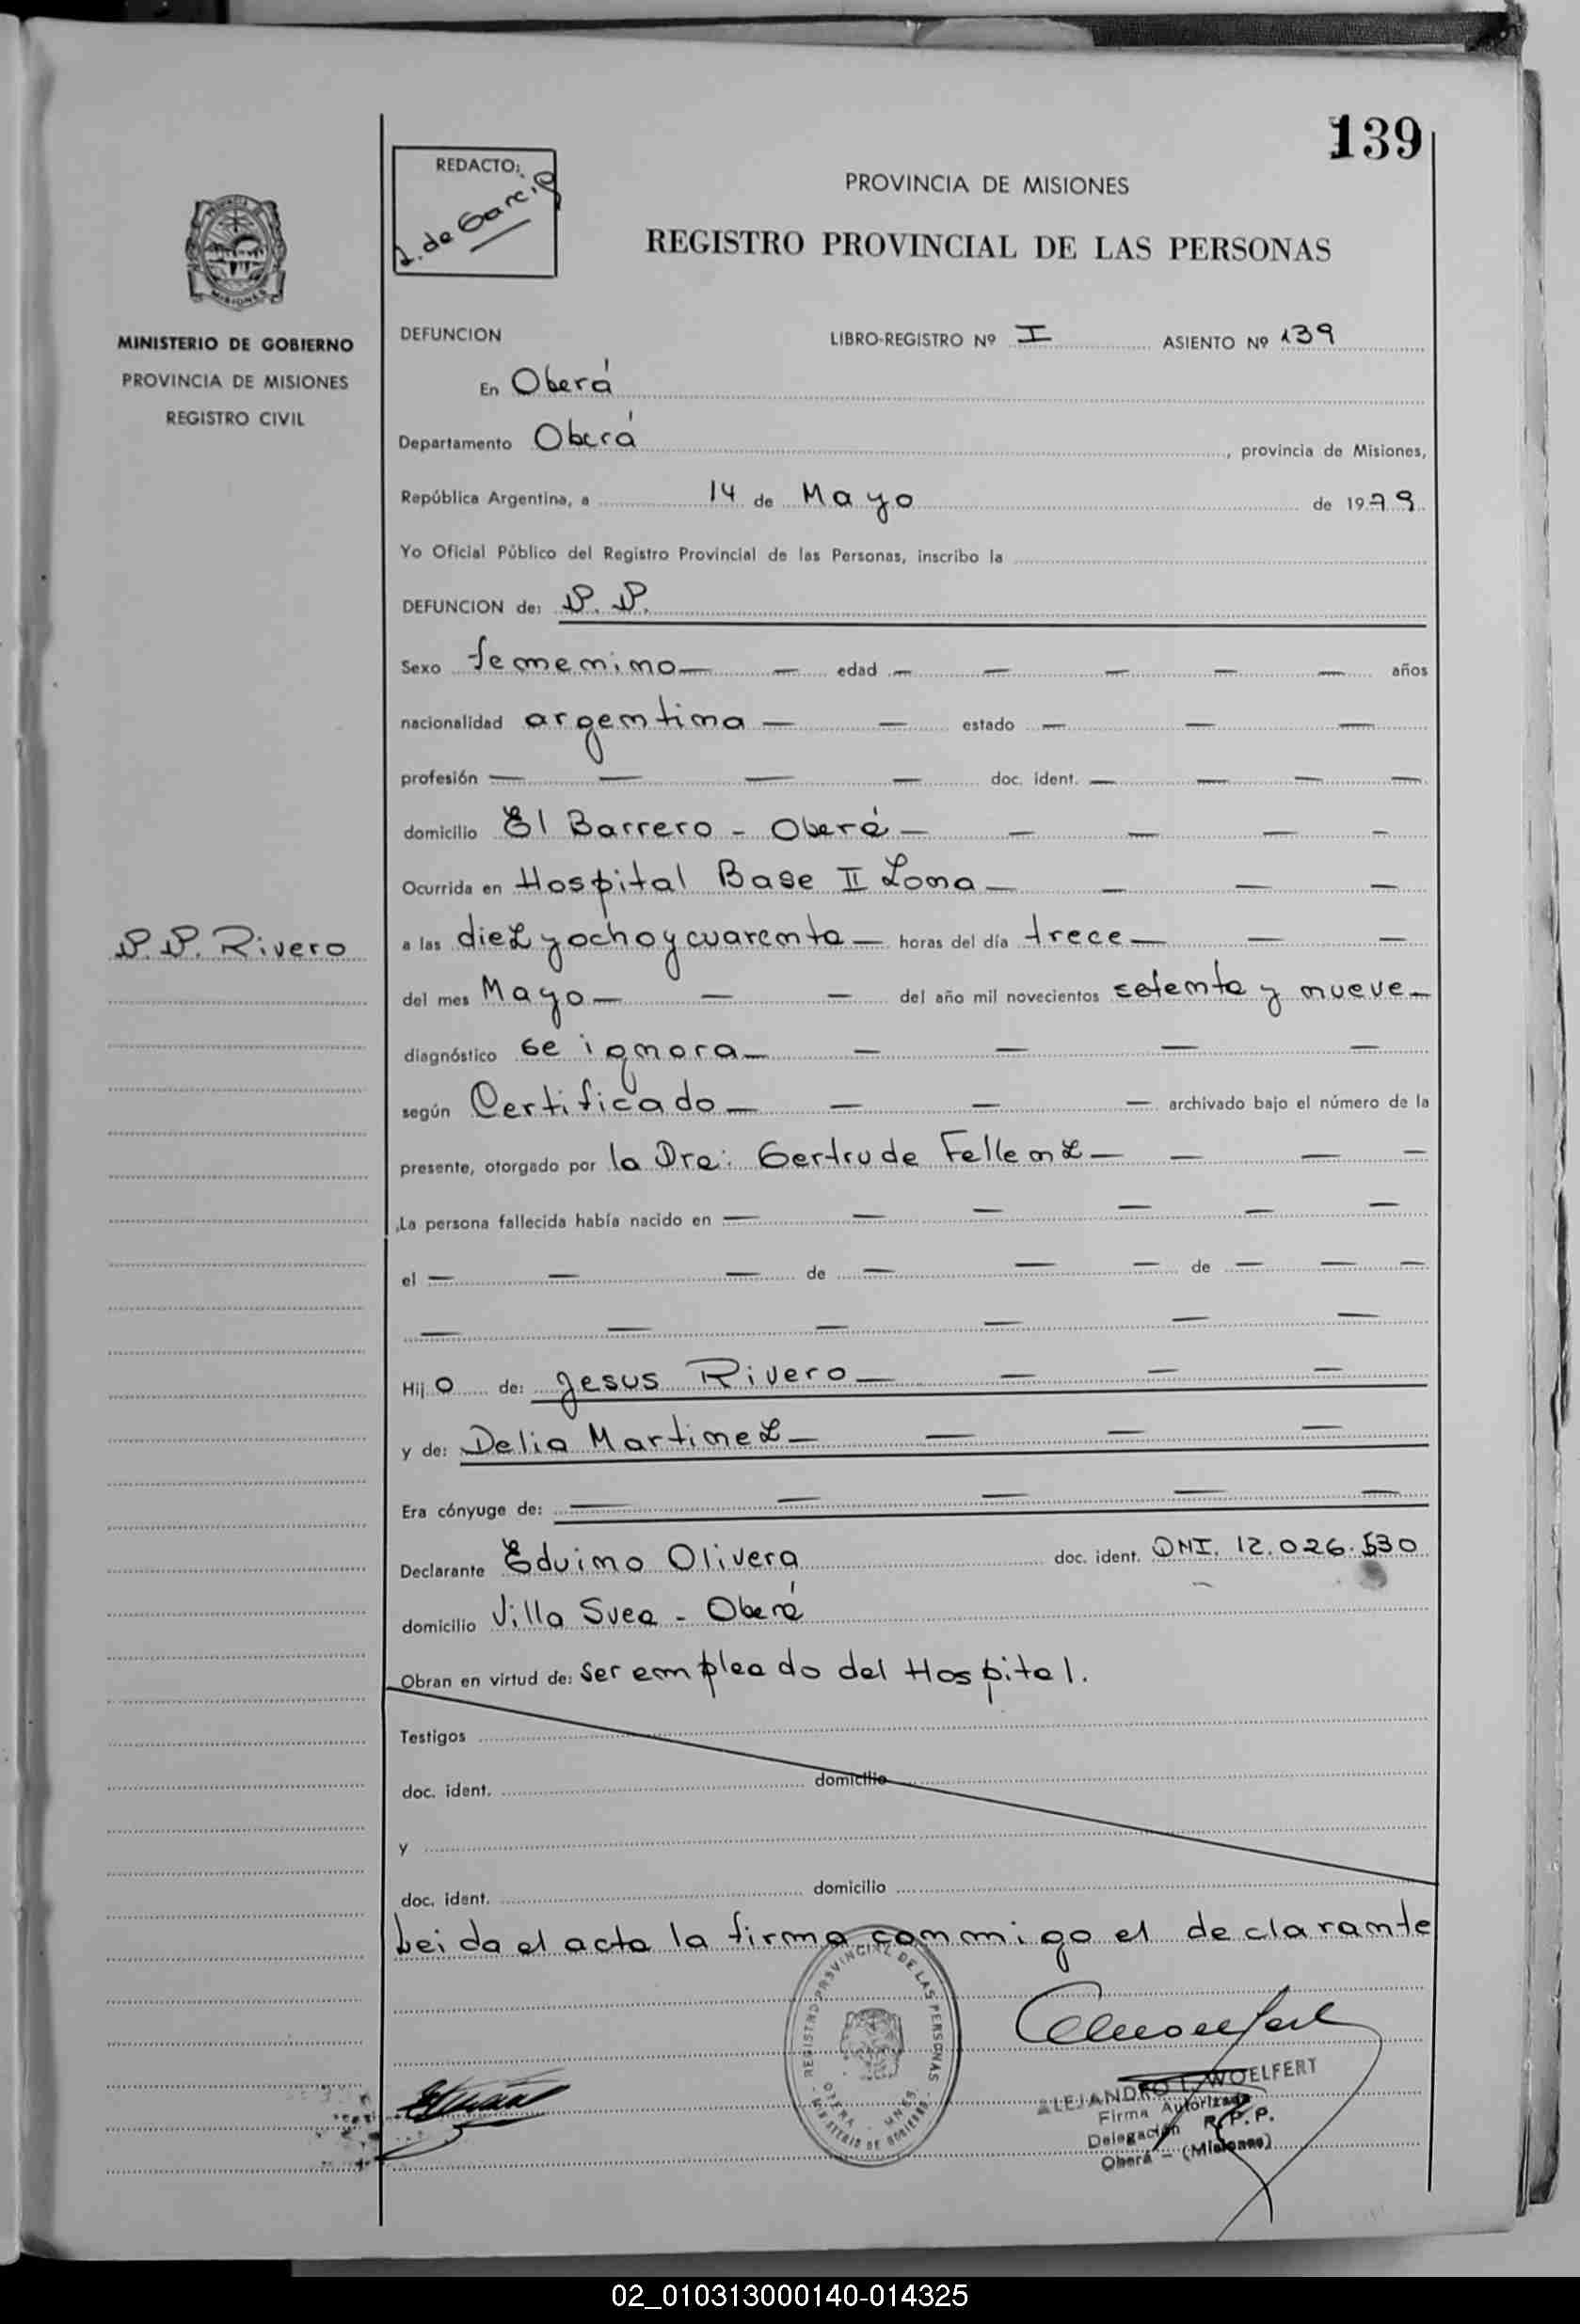 139
REDACTO:
de Garcia
PROVINCIA DE MISIONES
REGISTRO PROVINCIAL DE LAS PERSONAS
MINISTERIO DE GOBIERNO
PROVINCIA DE MISIONES
REGISTRO CIVIL
DEFUNCION LIBRO-REGISTRO Nº I ASIENTO Nº 139
En Oberá
Departamento Oberá, provincia de Misiones,
República Argentina, a 14 de Mayo de 1979
Yo Oficial Público del Registro Provincial de las Personas, inscribo la
DEFUNCION de:
Sexo femenino — — edad — — — — — años
nacionalidad argentina — — estado — — —
profesión — — — — doc. ident. — — — —
domicilio El Barrero - Oberá — — — — —
Ocurrida en Hospital Base II Zona — — — —
Rivero
a las diez y ocho y cuarenta — horas del día trece — — —
del mes Mayo — — — del año mil novecientos setenta y nueve —
diagnóstico se ignora — — — — —
según Certificado — — — — archivado bajo el número de la
presente, otorgado por la Dra: Gertrude Fellenz — — — —
La persona fallecida había nacido en — — — — — —
el — — — de — — — de — — —
— — — — — —
Hijo de: Jesus Rivero — — — —
y de: Delia Martinez — — — —
Era cónyuge de: — — — — —
Declarante Eduino Olivera doc. ident. DNI. 12.026.530
domicilio Villa Svea - Oberá
Obran en virtud de: ser empleado del Hospital.
Testigos
doc. ident. domicilio
y
doc. ident. domicilio
Leida el acta la firma conmigo el declarante
REGISTRO PROVINCIAL DE LAS PERSONAS
OBERA - MNES.
MINISTERIO DE GOBIERNO
ALEJANDRO L. WOELFERT
Firma Autorizada
Delegación R.P.P.
Oberá - (Misiones)
02_010313000140-014325